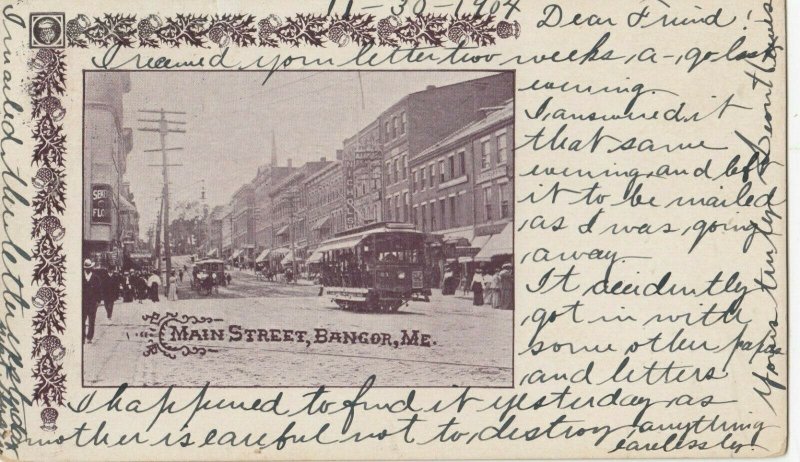 11-30-1904
Dear Friend!
I received your letter two weeks, a-,go last
evening.
I,answered,it
that same
evening,and left
it to be mailed
,as I was,going
,away.
It,accidently
,got in with
some other papers
,and letters
I happened to find it yesterday,as
mother is careful not to,destroy,anything
carelessly!
Yours truly
I mailed the letter
SEN
FLO
MAIN STREET, BANGOR, ME.